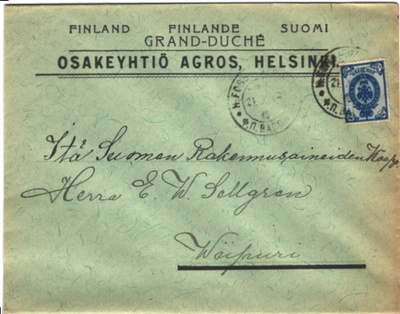 FINLAND FINLANDE SUOMI
GRAND-DUCHÉ
OSAKEYHTIÖ AGROS, HELSINKI.
Itä Suomen Rakennusaineiden Kaupp
Herra E. W. Sellgren
Wiipuri